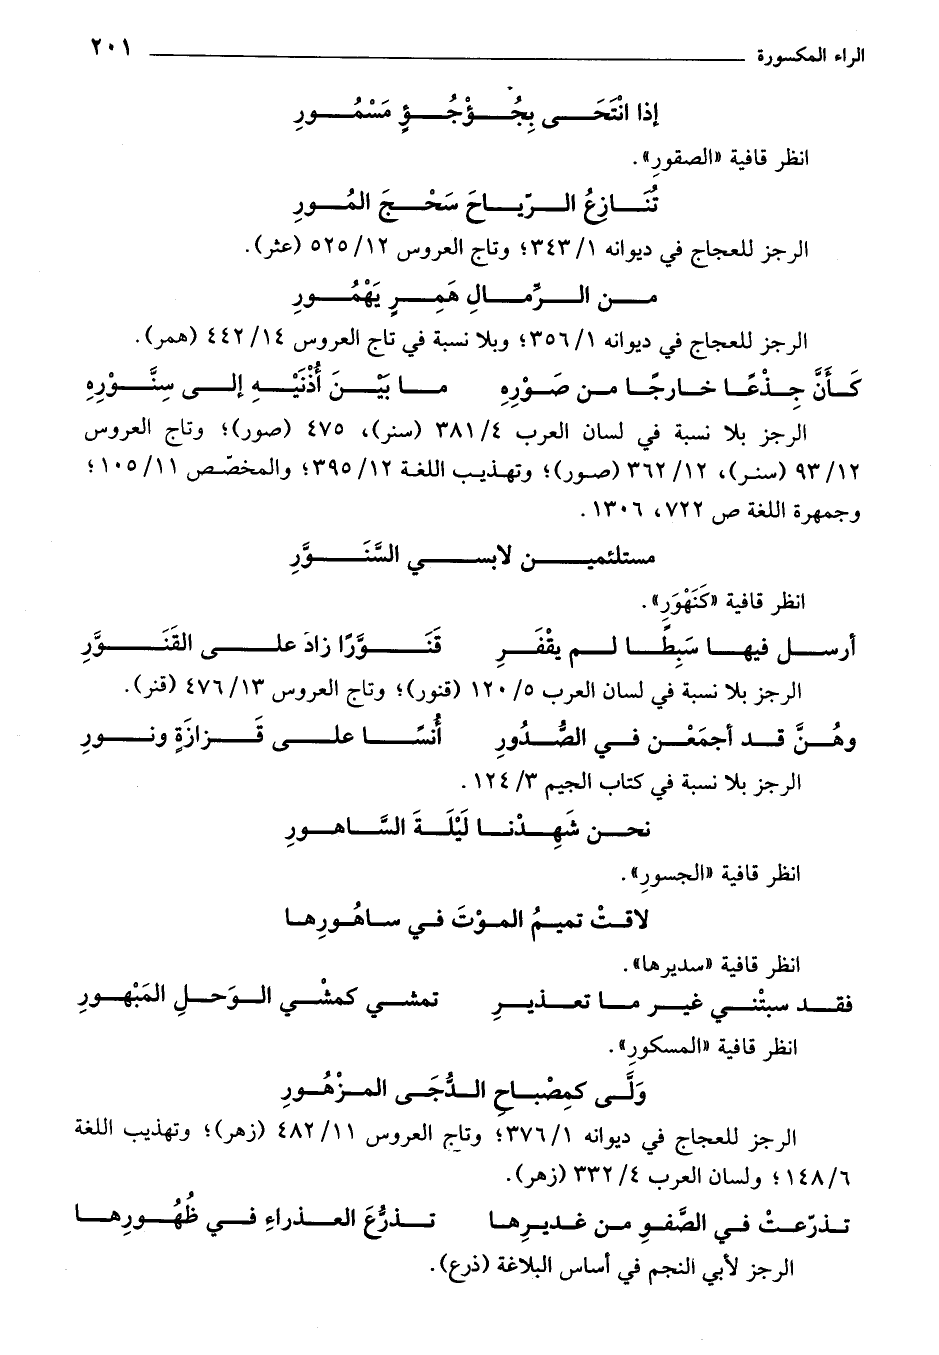 الراء المكسورة ٢٠١
إذا انْتَحَى بِجُؤْجُؤٍ مَسْمُورِ
انظر قافية «الصقورِ».
تُنَازِعُ الرّيَاحَ سَحْجَ المُورِ
الرجز للعجاج في ديوانه ١/ ٣٤٣؛ وتاج العروس ١٢/ ٥٢٥ (عثر).
من الرِّمالِ هَمِرٍ يَهْمُورِ
الرجز للعجاج في ديوانه ١/ ٣٥٦؛ وبلا نسبة في تاج العروس ١٤/ ٤٤٢ (همر).
كَأَنَّ جِذْعًا خارجًا من صَوْرِهِ ما بَيْنَ أُذْنَيْهِ إلى سِنَّوْرِهِ
الرجز بلا نسبة في لسان العرب ٤/ ٣٨١ (سنر)، ٤٧٥ (صور)؛ وتاج العروس
١٢/ ٩٣ (سنر)، ١٢/ ٣٦٢ (صور)؛ وتهذيب اللغة ١٢/ ٣٩٥؛ والمخصّص ١١/ ١٠٥؛
وجمهرة اللغة ص ٧٢٢، ١٣٠٦.
مستلئمين لابسي السَّنَوَّرِ
انظر قافية «كَنَهْوَرِ».
أرسل فيها سَبِطًا لم يقْفَرِ قَنَوَّرًا زادَ على القَنَوَّرِ
الرجز بلا نسبة في لسان العرب ٥/ ١٢٠ (قنور)؛ وتاج العروس ١٣/ ٤٧٦ (قنر).
وهُنَّ قد أجمَعْن في الصُّدُورِ أُنسًا على قَزازَةٍ ونورِ
الرجز بلا نسبة في كتاب الجيم ٣/ ١٢٤.
نحن شَهِدْنا لَيْلَةَ السَّاهورِ
انظر قافية «الجسورِ».
لاقتْ تميمُ الموْتَ في ساهُورِها
انظر قافية «سديرها».
فقد سبتْني غير ما تعذيرِ تمشي كمشْي الوَحلِ المَبْهورِ
انظر قافية «المسكورِ».
وَلَّى كمِصْباحِ الدُّجَى المزْهُورِ
الرجز للعجاج في ديوانه ١/ ٣٧٦؛ وتاج العروس ١١/ ٤٨٢ (زهر)؛ وتهذيب اللغة
٦/ ١٤٨؛ ولسان العرب ٤/ ٣٣٢ (زهر).
تذرّعتْ في الصَّفوِ من غديرِها تذرُّعَ العذراءِ في ظُهُورِها
الرجز لأبي النجم في أساس البلاغة (ذرع).